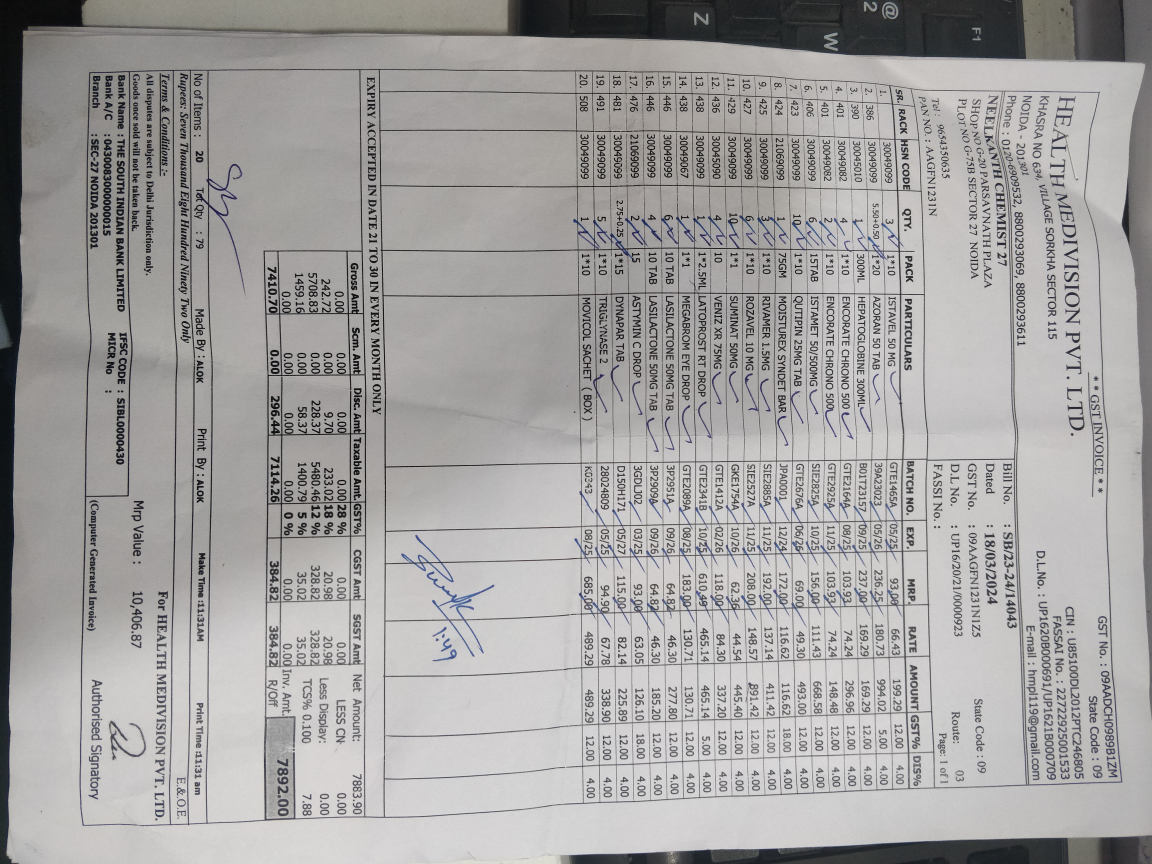 ** GST INVOICE **
HEALTH MEDIVISION PVT. LTD.
KHASRA NO 634, VILLAGE SORKHA SECTOR 115
NOIDA - 201301
Phone : 0120-6909532, 8800293069, 8800293611
GST No. : 09AADCH0989B1ZM
State Code : 09
CIN : U85100DL2012PTC246805
FASSAI No. : 22722925001533
D.L.No. : UP1620B000691/UP1621B000709
E-mail : hmpl119@gmail.com
NEELKANTH CHEMIST 27
SHOP NO G-20 PARSAVNATH PLAZA
PLOT NO G-75B SECTOR 27 NOIDA
Tel : 9654350635
PAN NO. : AAGFN1231N
Bill No. : SB/23-24/14043
Dated : 18/03/2024
GST No. : 09AAGFN1231N1Z5 State Code : 09
D.L. No. : UP16/20/21/0000923 Route: 03
FASSI No. : Page: 1 of 1
SR. RACK HSN CODE QTY. PACK PARTICULARS BATCH NO. EXP. MRP. RATE AMOUNT GST% DIS%
1. 30049099 3 1*10 ISTAVEL 50 MG GTE1465A 05/25 93.00 66.43 199.29 12.00 4.00
2. 386 30049099 5.50+0.50 1*20 AZORAN 50 TAB 39A23023 05/26 236.25 180.73 994.02 5.00 4.00
3. 390 30045010 1 300ML HEPATOGLOBINE 300ML B01T23157 09/25 237.00 169.29 169.29 12.00 4.00
4. 401 30049082 4 1*10 ENCORATE CHRONO 500 GTE2164A 08/25 103.93 74.24 296.96 12.00 4.00
5. 401 30049082 2 1*10 ENCORATE CHRONO 500 GTE2925A 11/25 103.93 74.24 148.48 12.00 4.00
6. 406 30049099 6 15TAB ISTAMET 50/500MG SIE2825A 10/25 156.00 111.43 668.58 12.00 4.00
7. 423 30049099 10 1*10 QUTIPIN 25MG TAB GTE2676A 06/26 69.00 49.30 493.00 12.00 4.00
8. 424 21069099 1 75GM MOISTUREX SYNDET BAR JPA0001 12/24 172.00 116.62 116.62 18.00 4.00
9. 425 30049099 3 1*10 RIVAMER 1.5MG SIE2885A 11/25 192.00 137.14 411.42 12.00 4.00
10. 427 30049099 6 1*10 ROZAVEL 10 MG SIE2527A 11/25 208.00 148.57 891.42 12.00 4.00
11. 429 30049099 10 1*1 SUMINAT 50MG GKE1754A 10/26 62.36 44.54 445.40 12.00 4.00
12. 436 30045090 4 10 VENIZ XR 75MG GTE1412A 02/26 118.00 84.30 337.20 12.00 4.00
13. 438 30049099 1 1*2.5ML LATOPROST RT DROP GTE2341B 10/25 610.49 465.14 465.14 5.00 4.00
14. 438 30049967 1 1*1 MEGABROM EYE DROP GTE2089A 08/25 183.00 130.71 130.71 12.00 4.00
15. 446 30049099 6 10 TAB LASILACTONE 50MG TAB 3P2951A 09/26 64.82 46.30 277.80 12.00 4.00
16. 446 30049099 4 10 TAB LASILACTONE 50MG TAB 3P2909A 09/26 64.82 46.30 185.20 12.00 4.00
17. 476 21069099 2 15 ASTYMIN C DROP 3GDLJ02 03/25 93.00 63.05 126.10 18.00 4.00
18. 481 30049099 2.75+0.25 1*15 DYNAPAR TAB D150H171 05/27 115.00 82.14 225.89 12.00 4.00
19. 491 30049099 5 1*10 TRIGLYNASE 2 28024809 05/25 94.90 67.78 338.90 12.00 4.00
20. 508 30049099 1 1*10 MOVICOL SACHET ( BOX ) 08/25 685.00 489.29 489.29 12.00 4.00
1:49
EXPIRY ACCEPTED IN DATE 21 TO 30 IN EVERY MONTH ONLY
Gross Amt Scm. Amt Disc. Amt Taxable Amt. GST% CGST Amt SGST Amt
0.00 0.00 0.00 0.00 28 % 0.00 0.00
242.72 0.00 9.70 233.02 18 % 20.98 20.98
5708.83 0.00 228.37 5480.46 12 % 328.82 328.82
1459.16 0.00 58.37 1400.79 5 % 35.02 35.02
0.00 0.00 0.00 0.00 0 % 0.00 0.00
7410.70 0.00 296.44 7114.26 384.82 384.82
Net Amount: 7883.90
LESS CN- 0.00
Less Display: 0.00
TCS% 0.100 7.88
Inv. Amt 7892.00
R/Off
No of Items : 20 Tot Qty : 79 Made By : ALOK Print By : ALOK Make Time :11:31AM Print Time :11:31 am
Rupees: Seven Thousand Eight Hundred Ninety Two Only E.&O.E.
Terms & Conditions :-
All disputes are subject to Delhi Jurisdiction only.
Goods once sold will not be taken back.
Mrp Value : 10,406.87
For HEALTH MEDIVISION PVT. LTD.
Bank Name : THE SOUTH INDIAN BANK LIMITED IFSC CODE : SIBL0000430
Bank A/C : 0430083000000015 MICR No :
Branch : SEC-27 NOIDA 201301
(Computer Generated Invoice)
Authorised Signatory
F1
@
2
W
Z